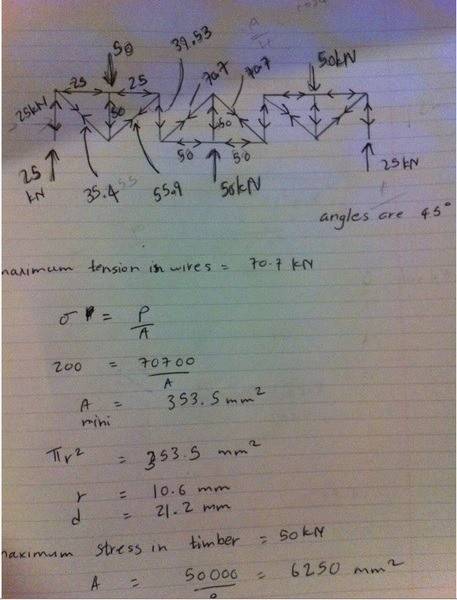 50
39.53
50kN
25
25
70.7
70.7
25kN
50
50
50
50
25
kN
35.4
55.9
50kN
25kN
angles are 45°
maximum tension in wires = 70.7 kN
σ = P/A
200 = 70700/A
A mini = 353.5 mm²
πr² = 353.5 mm²
r = 10.6 mm
d = 21.2 mm
maximum stress in timber = 50kN
A = 50000/8 = 6250 mm²